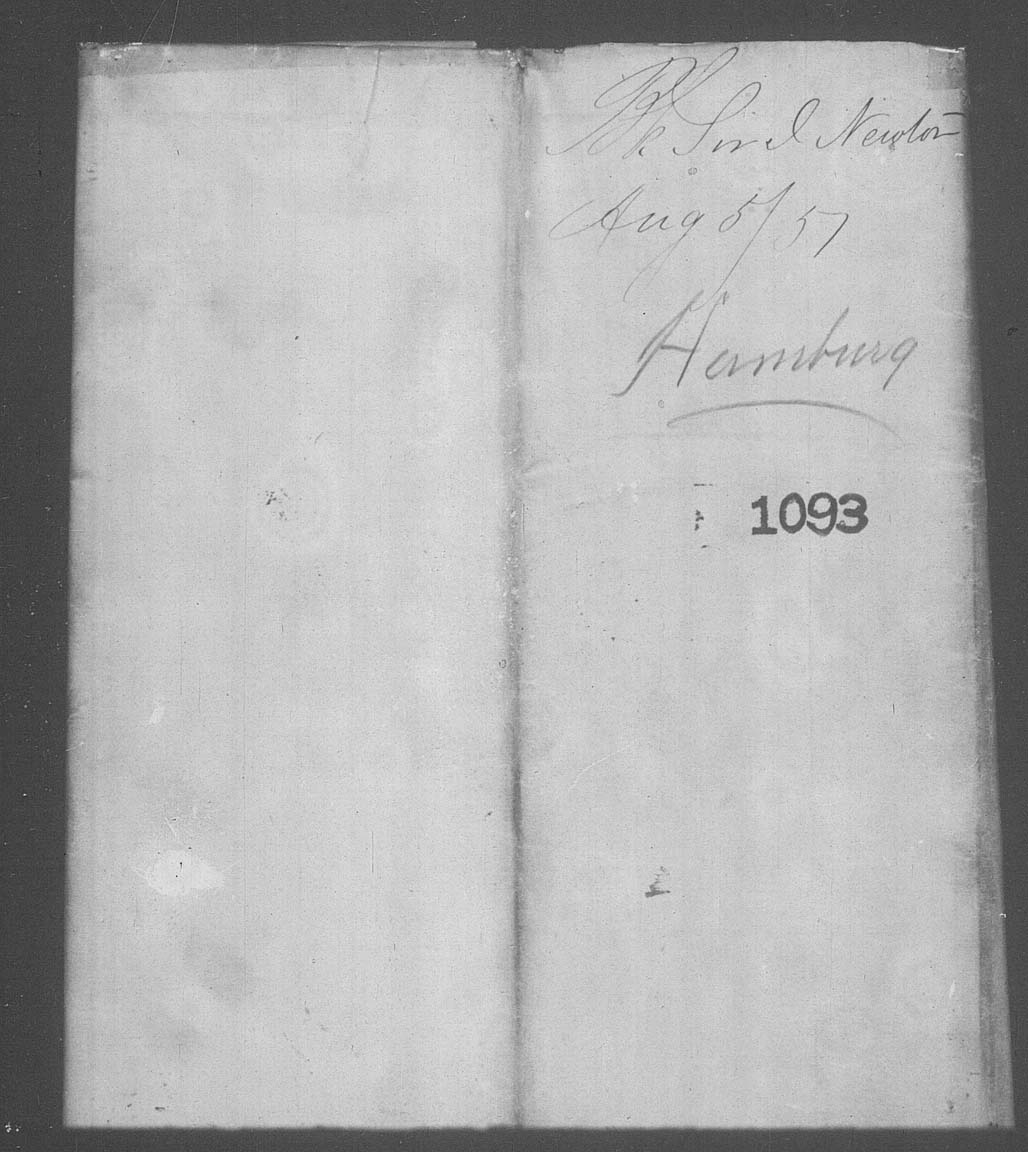 Bk Sir I Newton
Aug 5/57
Hamburg
1093